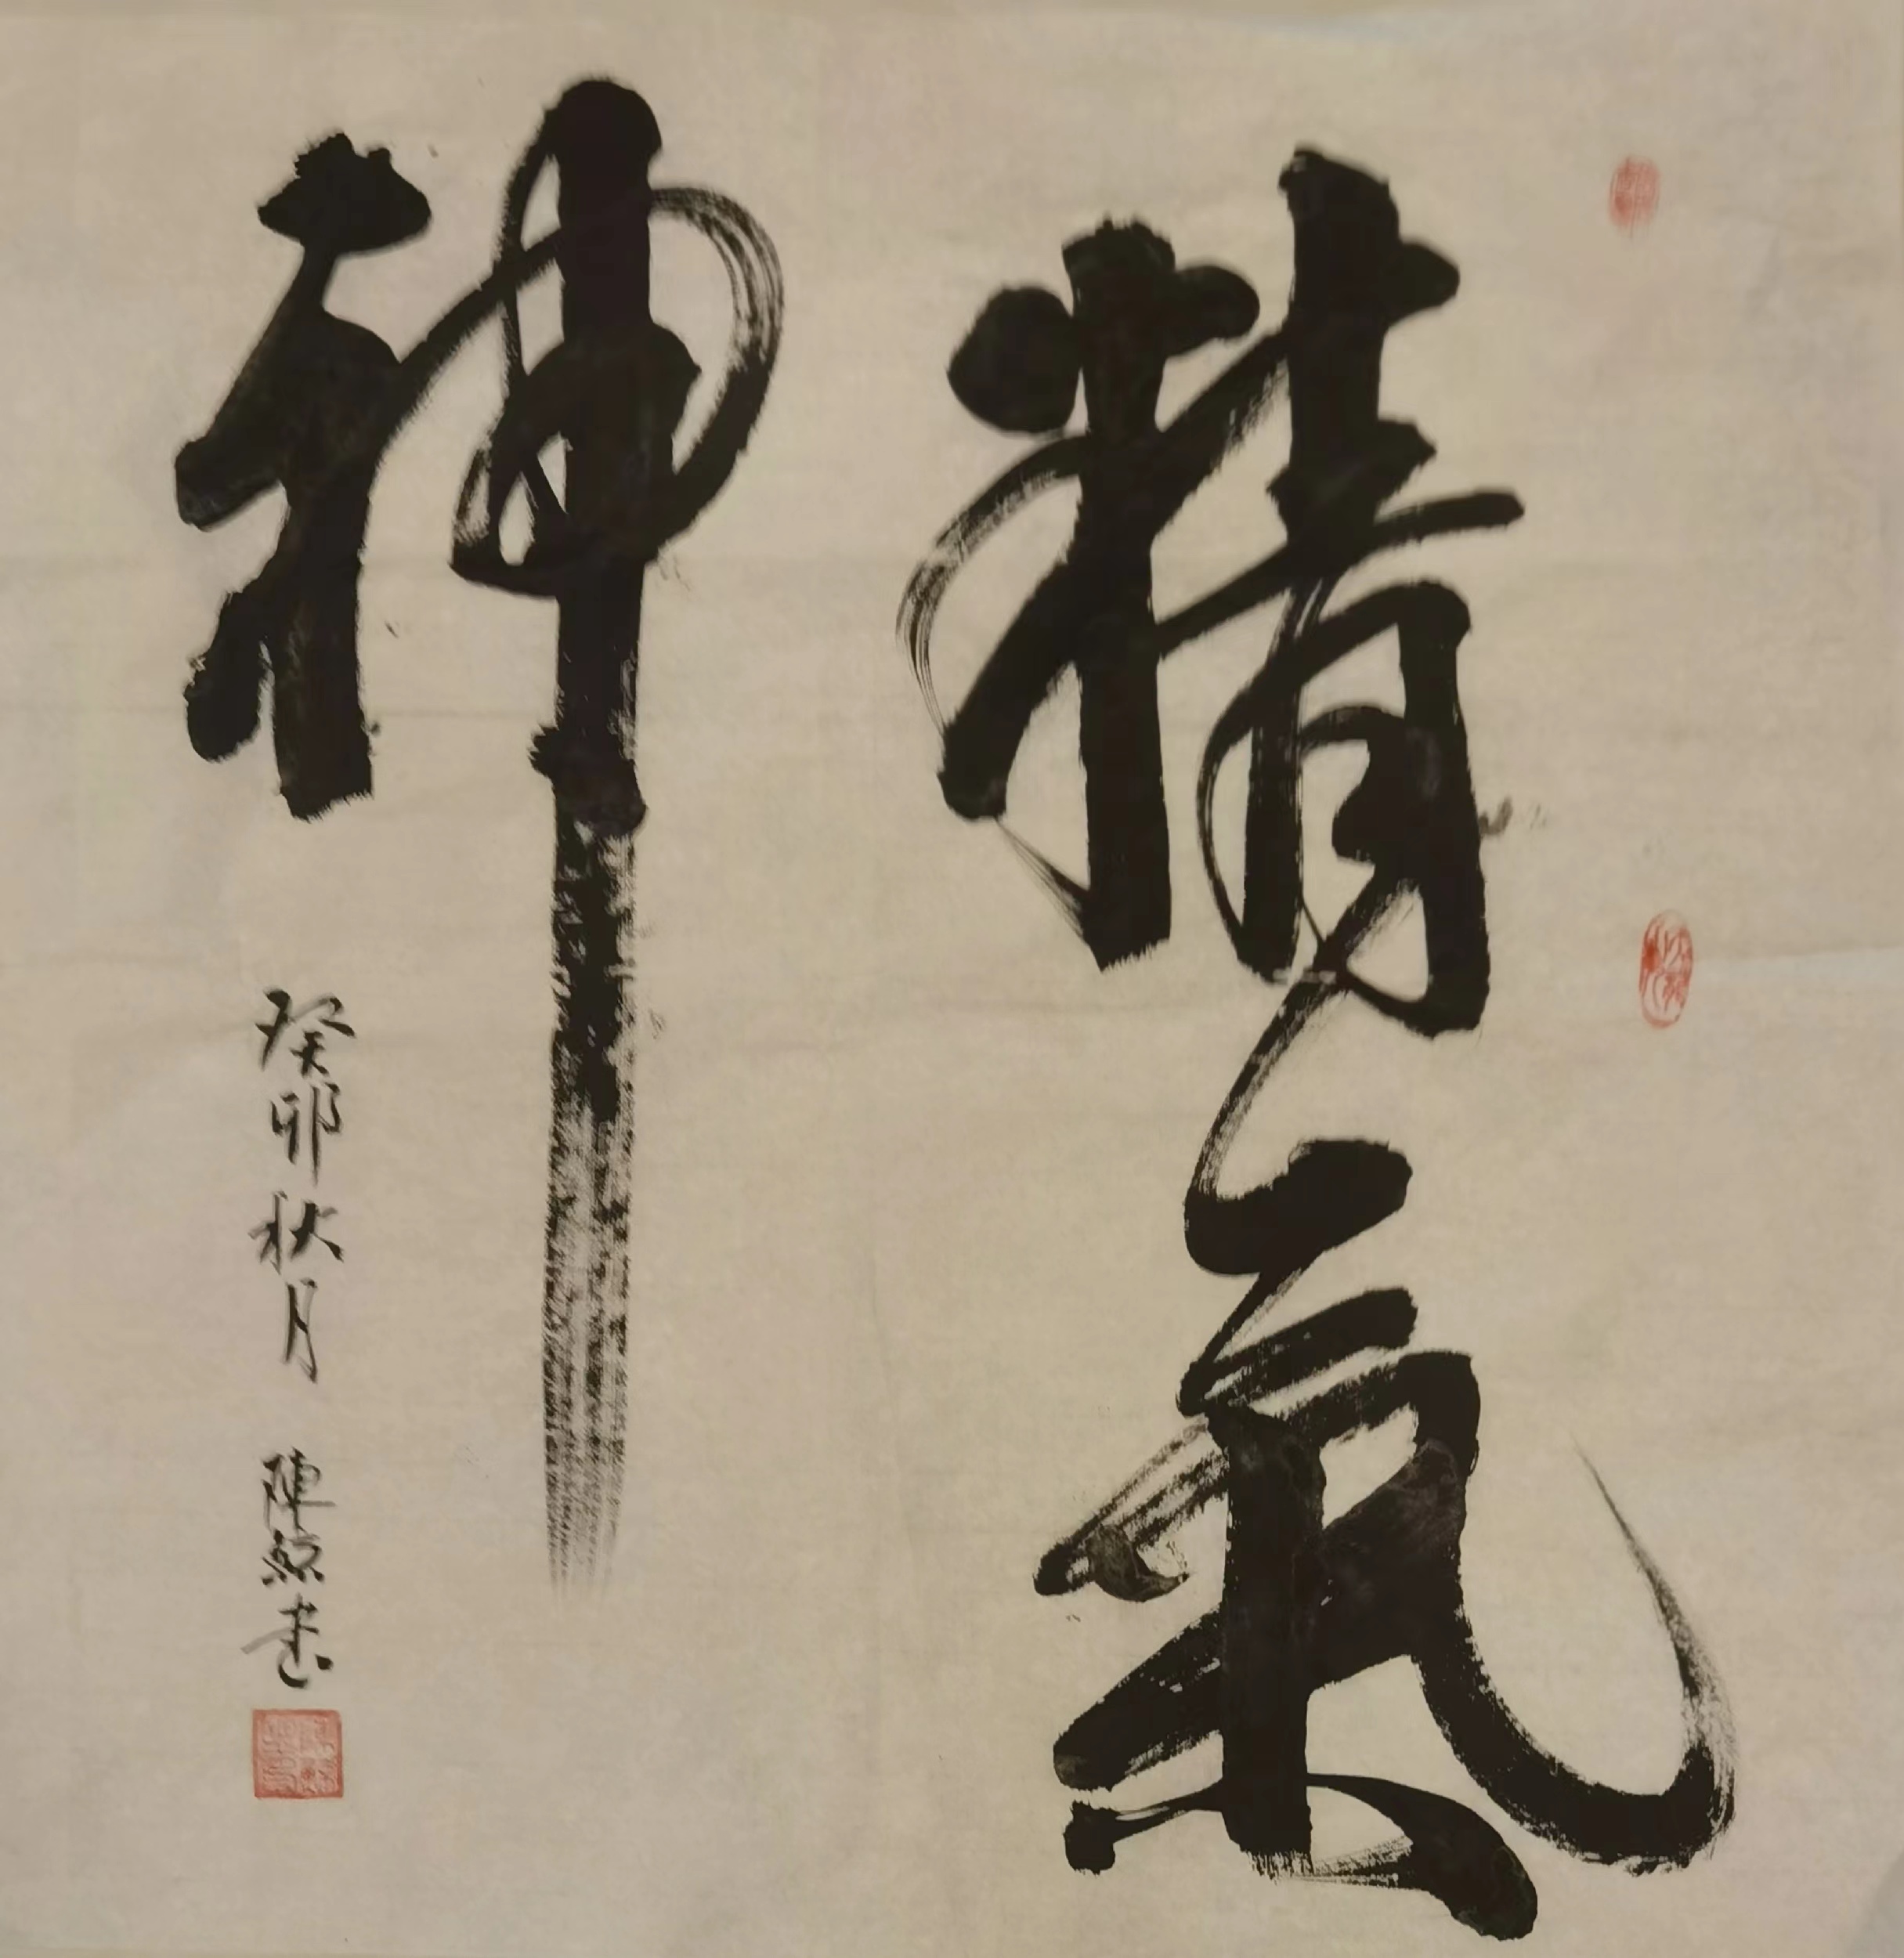 精氣
神
癸卯秋月 陳
書